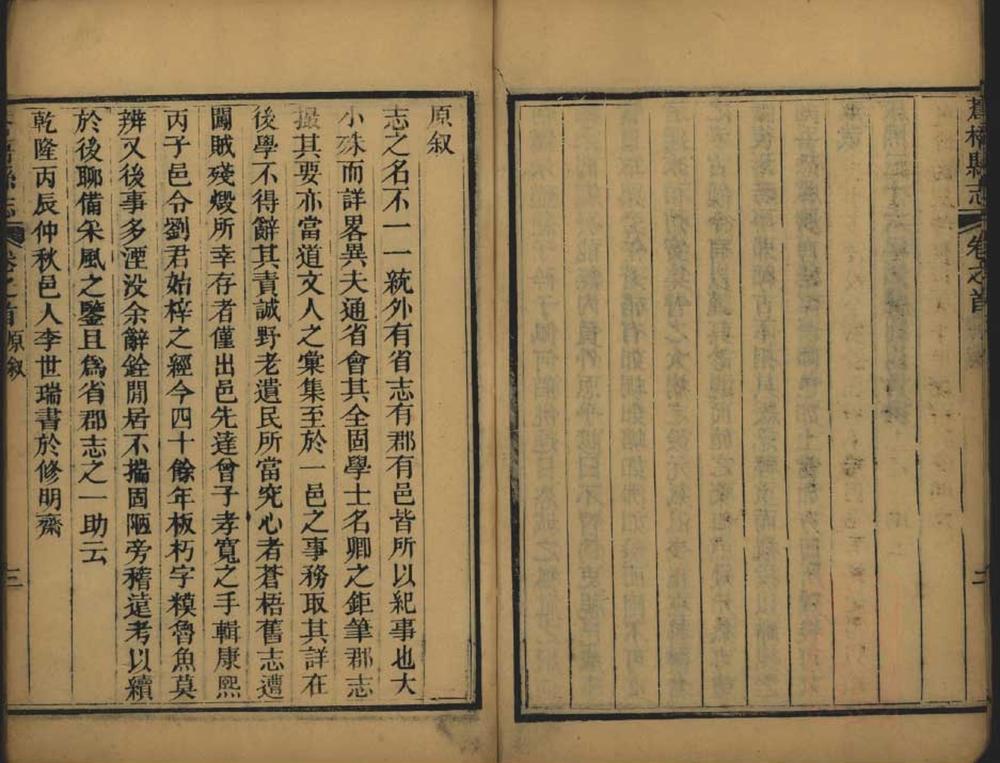 蒼梧縣志
卷之首
二
原叙
志之名不一一統外有省志有郡有邑皆所以紀事也大
小殊而詳畧異夫通省會其全固學士名卿之鉅筆郡志
撮其要亦當道文人之彙集至於一邑之事務取其詳在
後學不得辭其責誠野老遺民所當究心者蒼梧舊志遭
闖賊殘燬所幸存者僅出邑先達曾子孝寬之手輯康熙
丙子邑令劉君始梓之經今四十餘年板朽字糢魯魚莫
辨又後事多湮没余辭銓閒居不揣固陋旁稽遠考以續
於後聊備采風之鑒且爲省郡志之一助云
乾隆丙辰仲秋邑人李世瑞書於修明齋
蒼梧縣志
卷之首
原叙
三